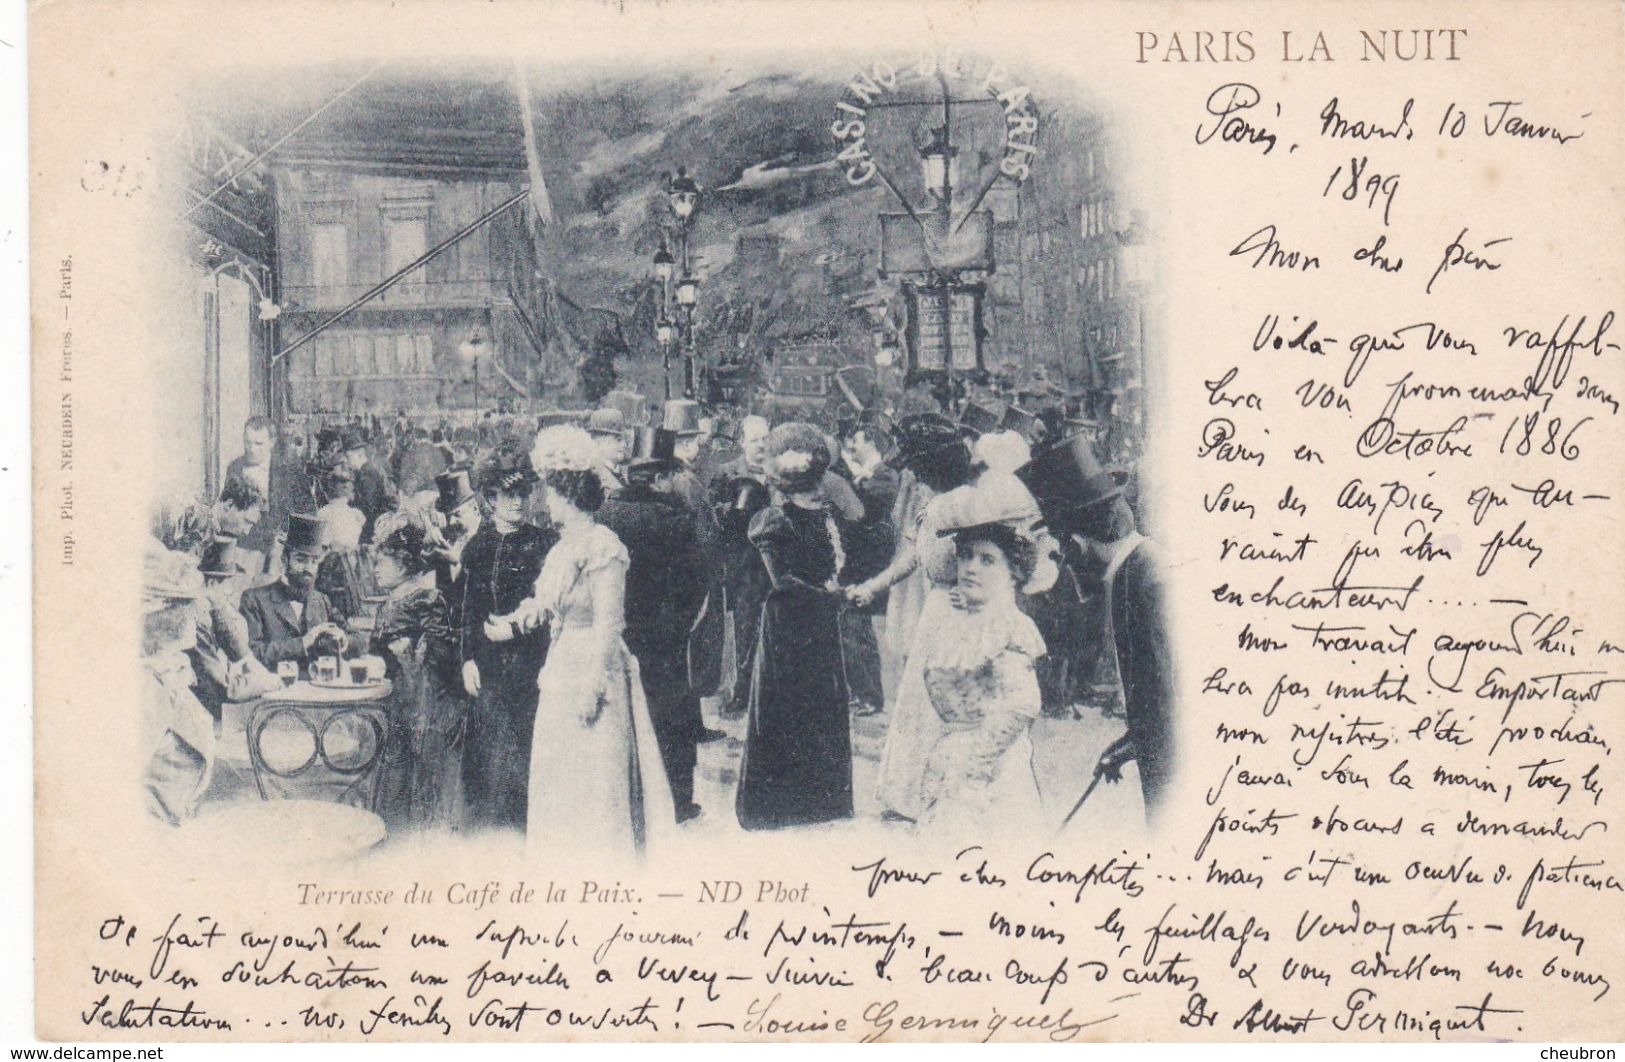 PARIS LA NUIT
CASINO DE PARIS
CASINO
Imp. Phot. NEURDEIN Frères. — Paris.
Terrasse du Café de la Paix. — ND Phot
Paris, Mardi 10 Janvier
1899
Mon cher père
Voilà qui vous rappel-
lera vos promenades dans
Paris en Octobre 1886
sous des auspices qui au-
raient pu être plus
enchanteurs .... —
Mon travail aujourd'hui ne
sera pas inutile. — Emportant
mon registre l'été prochain,
j'aurai sous la main, tous les
points obscurs à demander
pour êtres complétés ... mais c'est une oeuvre de patience
Il fait aujourd'hui une superbe journée de printemps, — moins les feuillages verdoyants. — Nous
vous en souhaitons une pareille à Vevey — suivie de beaucoup d'autres & vous adressons nos bonnes
salutations ... nos fenêtres sont ouvertes ! — Louise Germiquet
Dr Albert Germiquet.
www.delcampe.net
cheubron